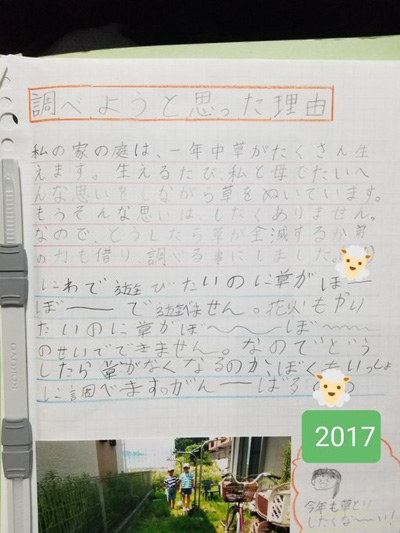 調べようと思った理由
私の家の庭は、一年中草がたくさん生
えます。生えるたび、私と母でたいへ
んな思いをしながら草をぬいています。
もうそんな思いは、したくありません。
なので、どうしたら草が全滅するか弟
の力も借り、調べる事にしました。
にわで遊びたいのに草がぼー
ぼーで遊べません。花火もやり
たいのに草がぼ〜〜ぼ〜〜
のせいでできません。なのでどう
したら草がなくなるのかぼくもいっしょ
に調べますっがんーばる
2017
今年も草とり
したくな〜い!